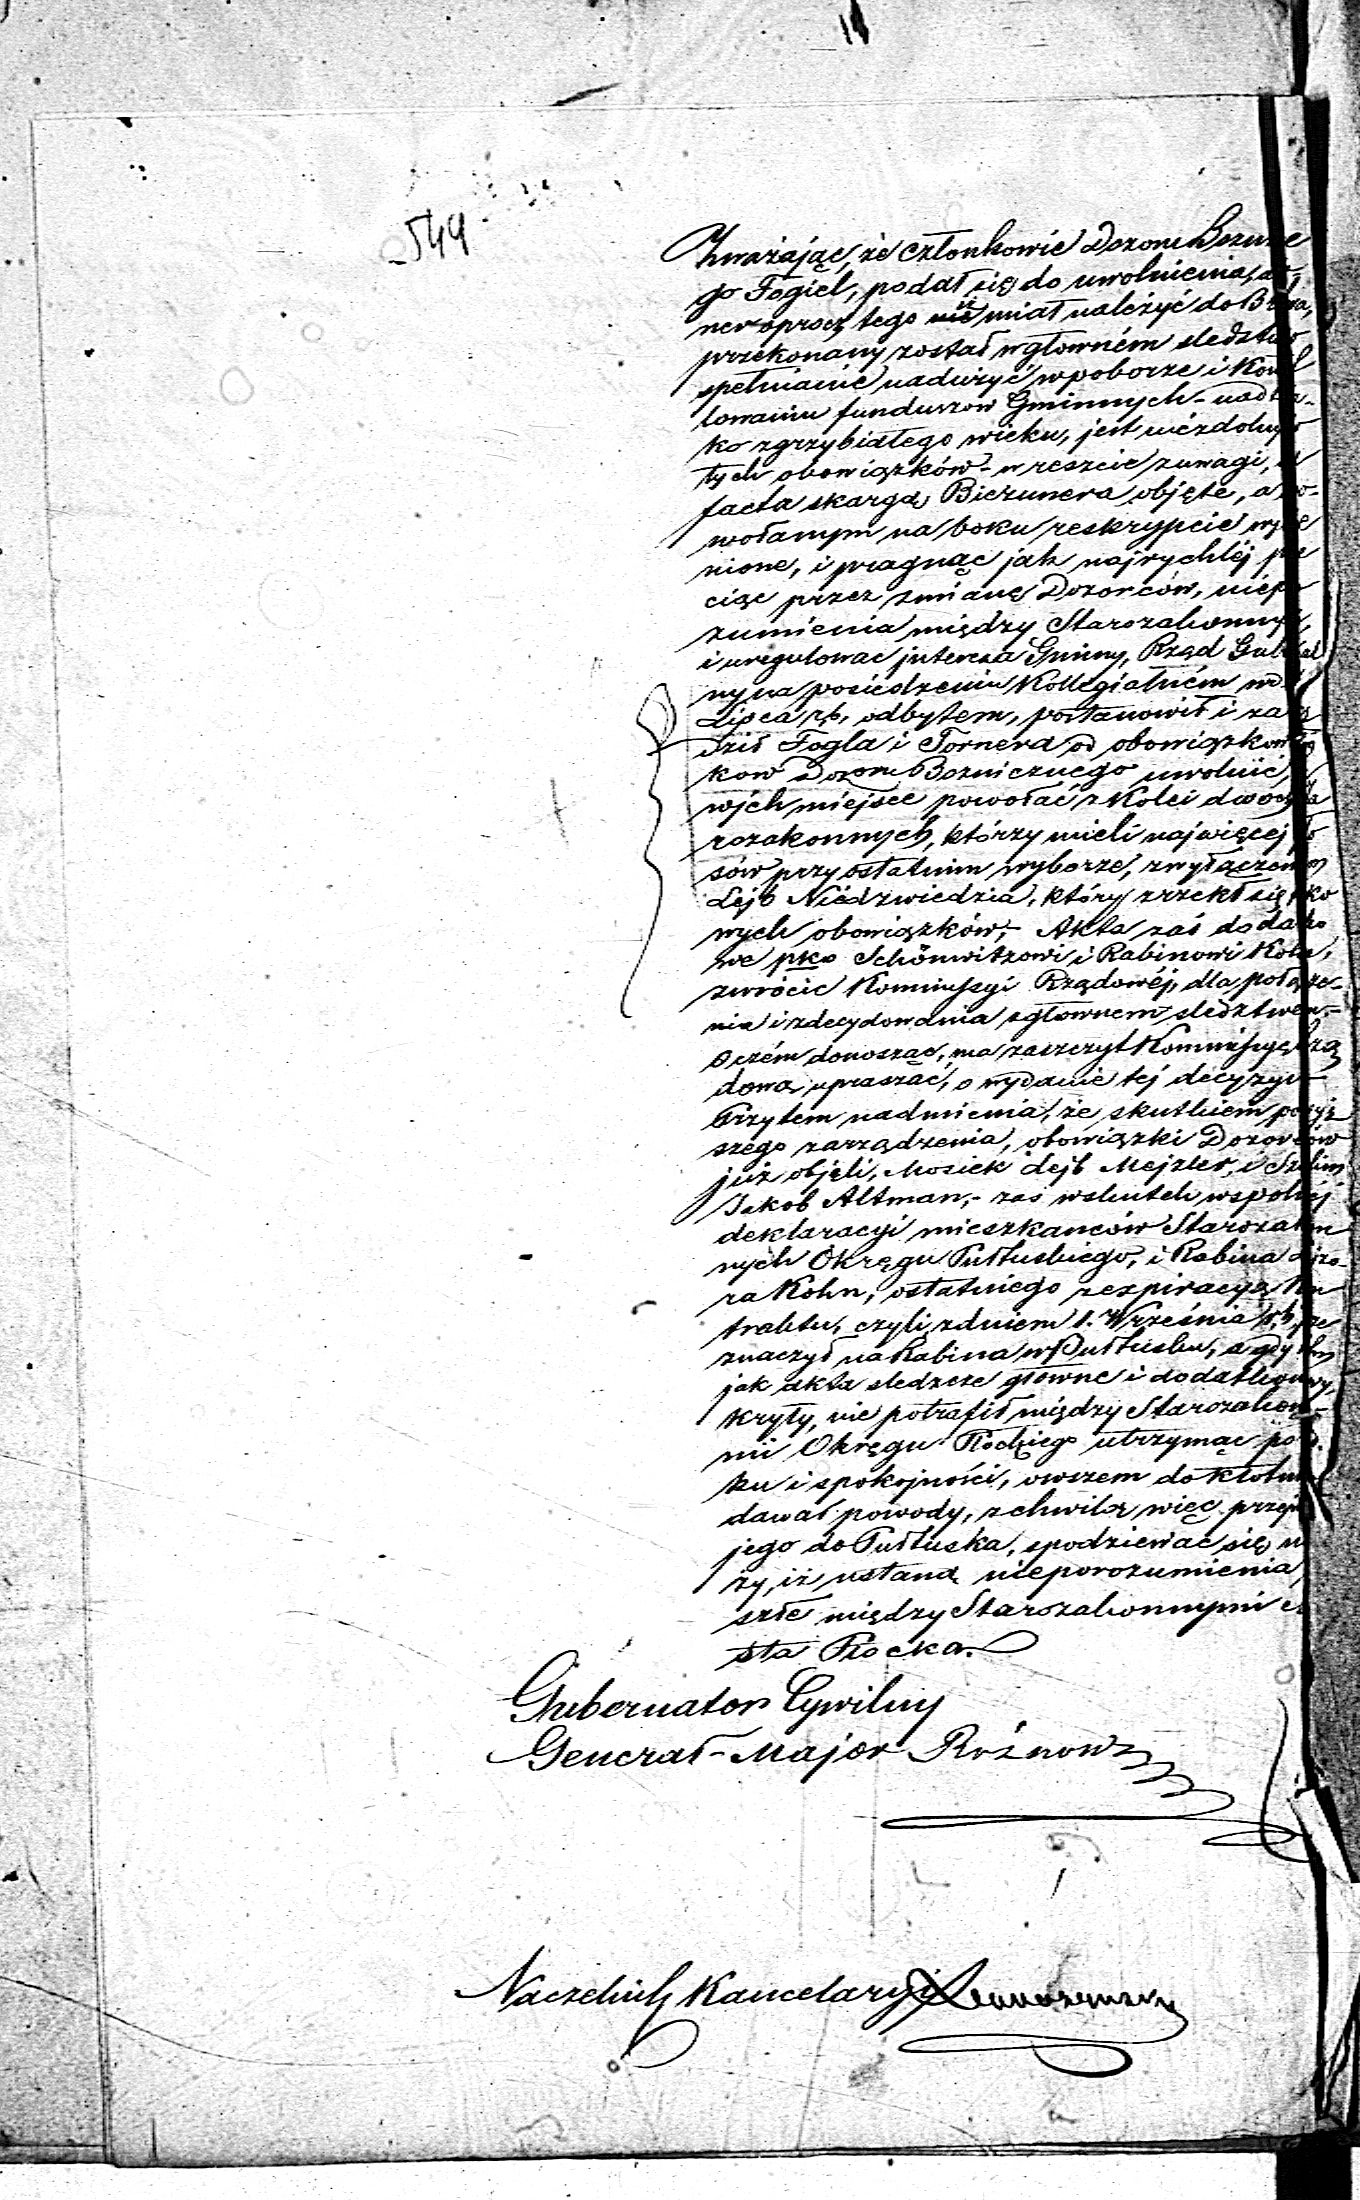 549
Zważając, że członkowie Dozoru Bożnicze
go Fogiel, podał się do uwolnienia,
ner oprócz tego miał należyć do
przekonany został w głowném śledztw
spełnianie nadużyć w poborze i
lowaniu funduszow Gminnych -
ko zgrzybiałego wieku, jest niezdolny
tych obowiązków - wreszcie z uwagi,
facta skargą Bierzunera objęte, a
wołanym na boku reskrypcie
nione, i pragnąc jak najrychléj
ciąc przez zmianę Dozorców, niepo
zumienia między Starozakonnymi,
i uregulowac interesa Gminy, Rząd Gubernial
ny na posiedzeniu Kollegialném
Lipca r.b. odbytem, postanowił i
dził Fogla i Tornera od obowiązków
kow Dozoru Bożnicznego uwolnić,
w ich miejsce powołać z Kolei dwóch
rozakonnych, którzy mieli najwięcej
sów przy ostatnim wyborze, z wyłączeniem
Lejb Niedzwiedzia, który zrzekł się
wych obowiązków, - Akta zaś dodatko
we pko Schönwitzowi i Rabinowi Kohn,
zwrócic Kommissyi Rządowéj, dla połącze-
nia i zdecydowania z głownem śledztwem. -
O czém donosząc, ma zaszczyt Kommissyę Rzą
dową upraszać, o wydanie téj decyzyi -
Przytem nadmienia, że skutkiem powyż
szego zarządzenia, obowiązki Dozorców
już objęli, Mosiek Lejb Mejzler, i
Jakob Altman, - zaś w skutek wspolnéj
deklaracyi mieszkanców Starozakon
nych Okręgu Pułtuskiego, i Rabina
ra Kohn, ostatniego z expiracyą Kon
traktu, czyli z dniem 1. Września r.b.
znaczył na Rabina w Pułtusku, a gdy
jak akta śledcze głowne i dodatkowe wy
kryły, nie potrafił między Starozakon-
nii Okręgu Płockiego utrzymac
ku i spokojności, owszem do kłotni
dawał powody, z chwilą więc
jego do Pułtuska, spodziewac się
ży, iż ustaną nieporozumienia,
szłe między Starozakonnymi
sta Płocka.
Gubernator Cywilny
Generał-Major Rożnow
Naczelnik Kancelaryi